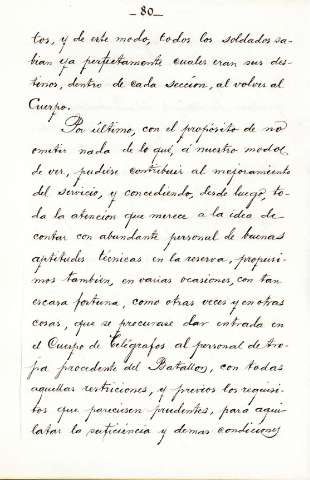 -80-
tos, y de este modo, todos los soldados sa-
bían ya perfectamente cuales eran sus des-
tinos, dentro de cada sección, al volver al
Cuerpo.
Por último, con el propósito de no
omitir nada de lo que, á nuestro modo
de ver, pudiese contribuir al mejoramiento
del servicio, y concediendo, desde luego, to-
da la atención que merece a la idea de
contar con abundante personal de buenas
aptitudes técnicas en la reserva, propusi-
mos también, en varias ocasiones, con tan
escasa fortuna, como otras veces y en otras
cosas, que se procurase dar entrada en
el Cuerpo de Telégrafos al personal de tro-
pa procedente del Batallón, con todas
aquellas restricciones, y previos los requisi-
tos que pareciesen prudentes, para aqui-
latar la suficiencia y demas condiciones